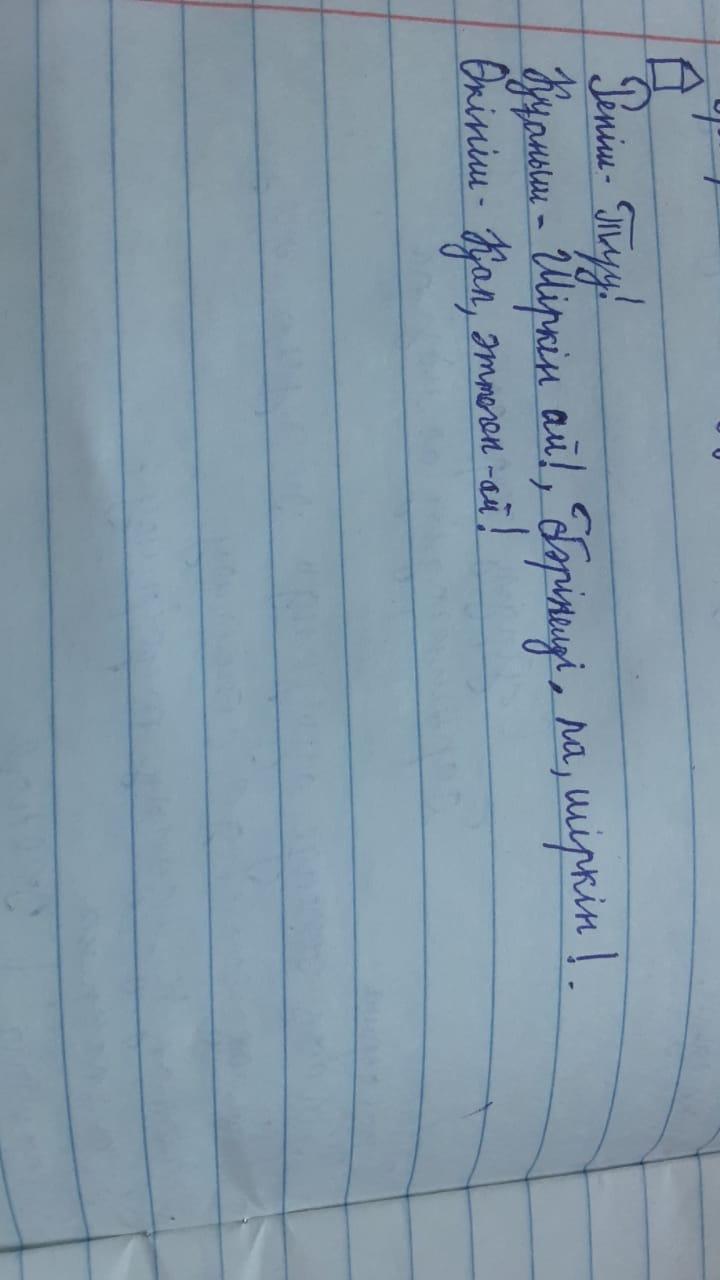 Реніш - Туу!
Қуаныш - Шіркін ай!, Бәрікелді, па, шіркін! -
Өкініш - Қап, әттеген-ай!